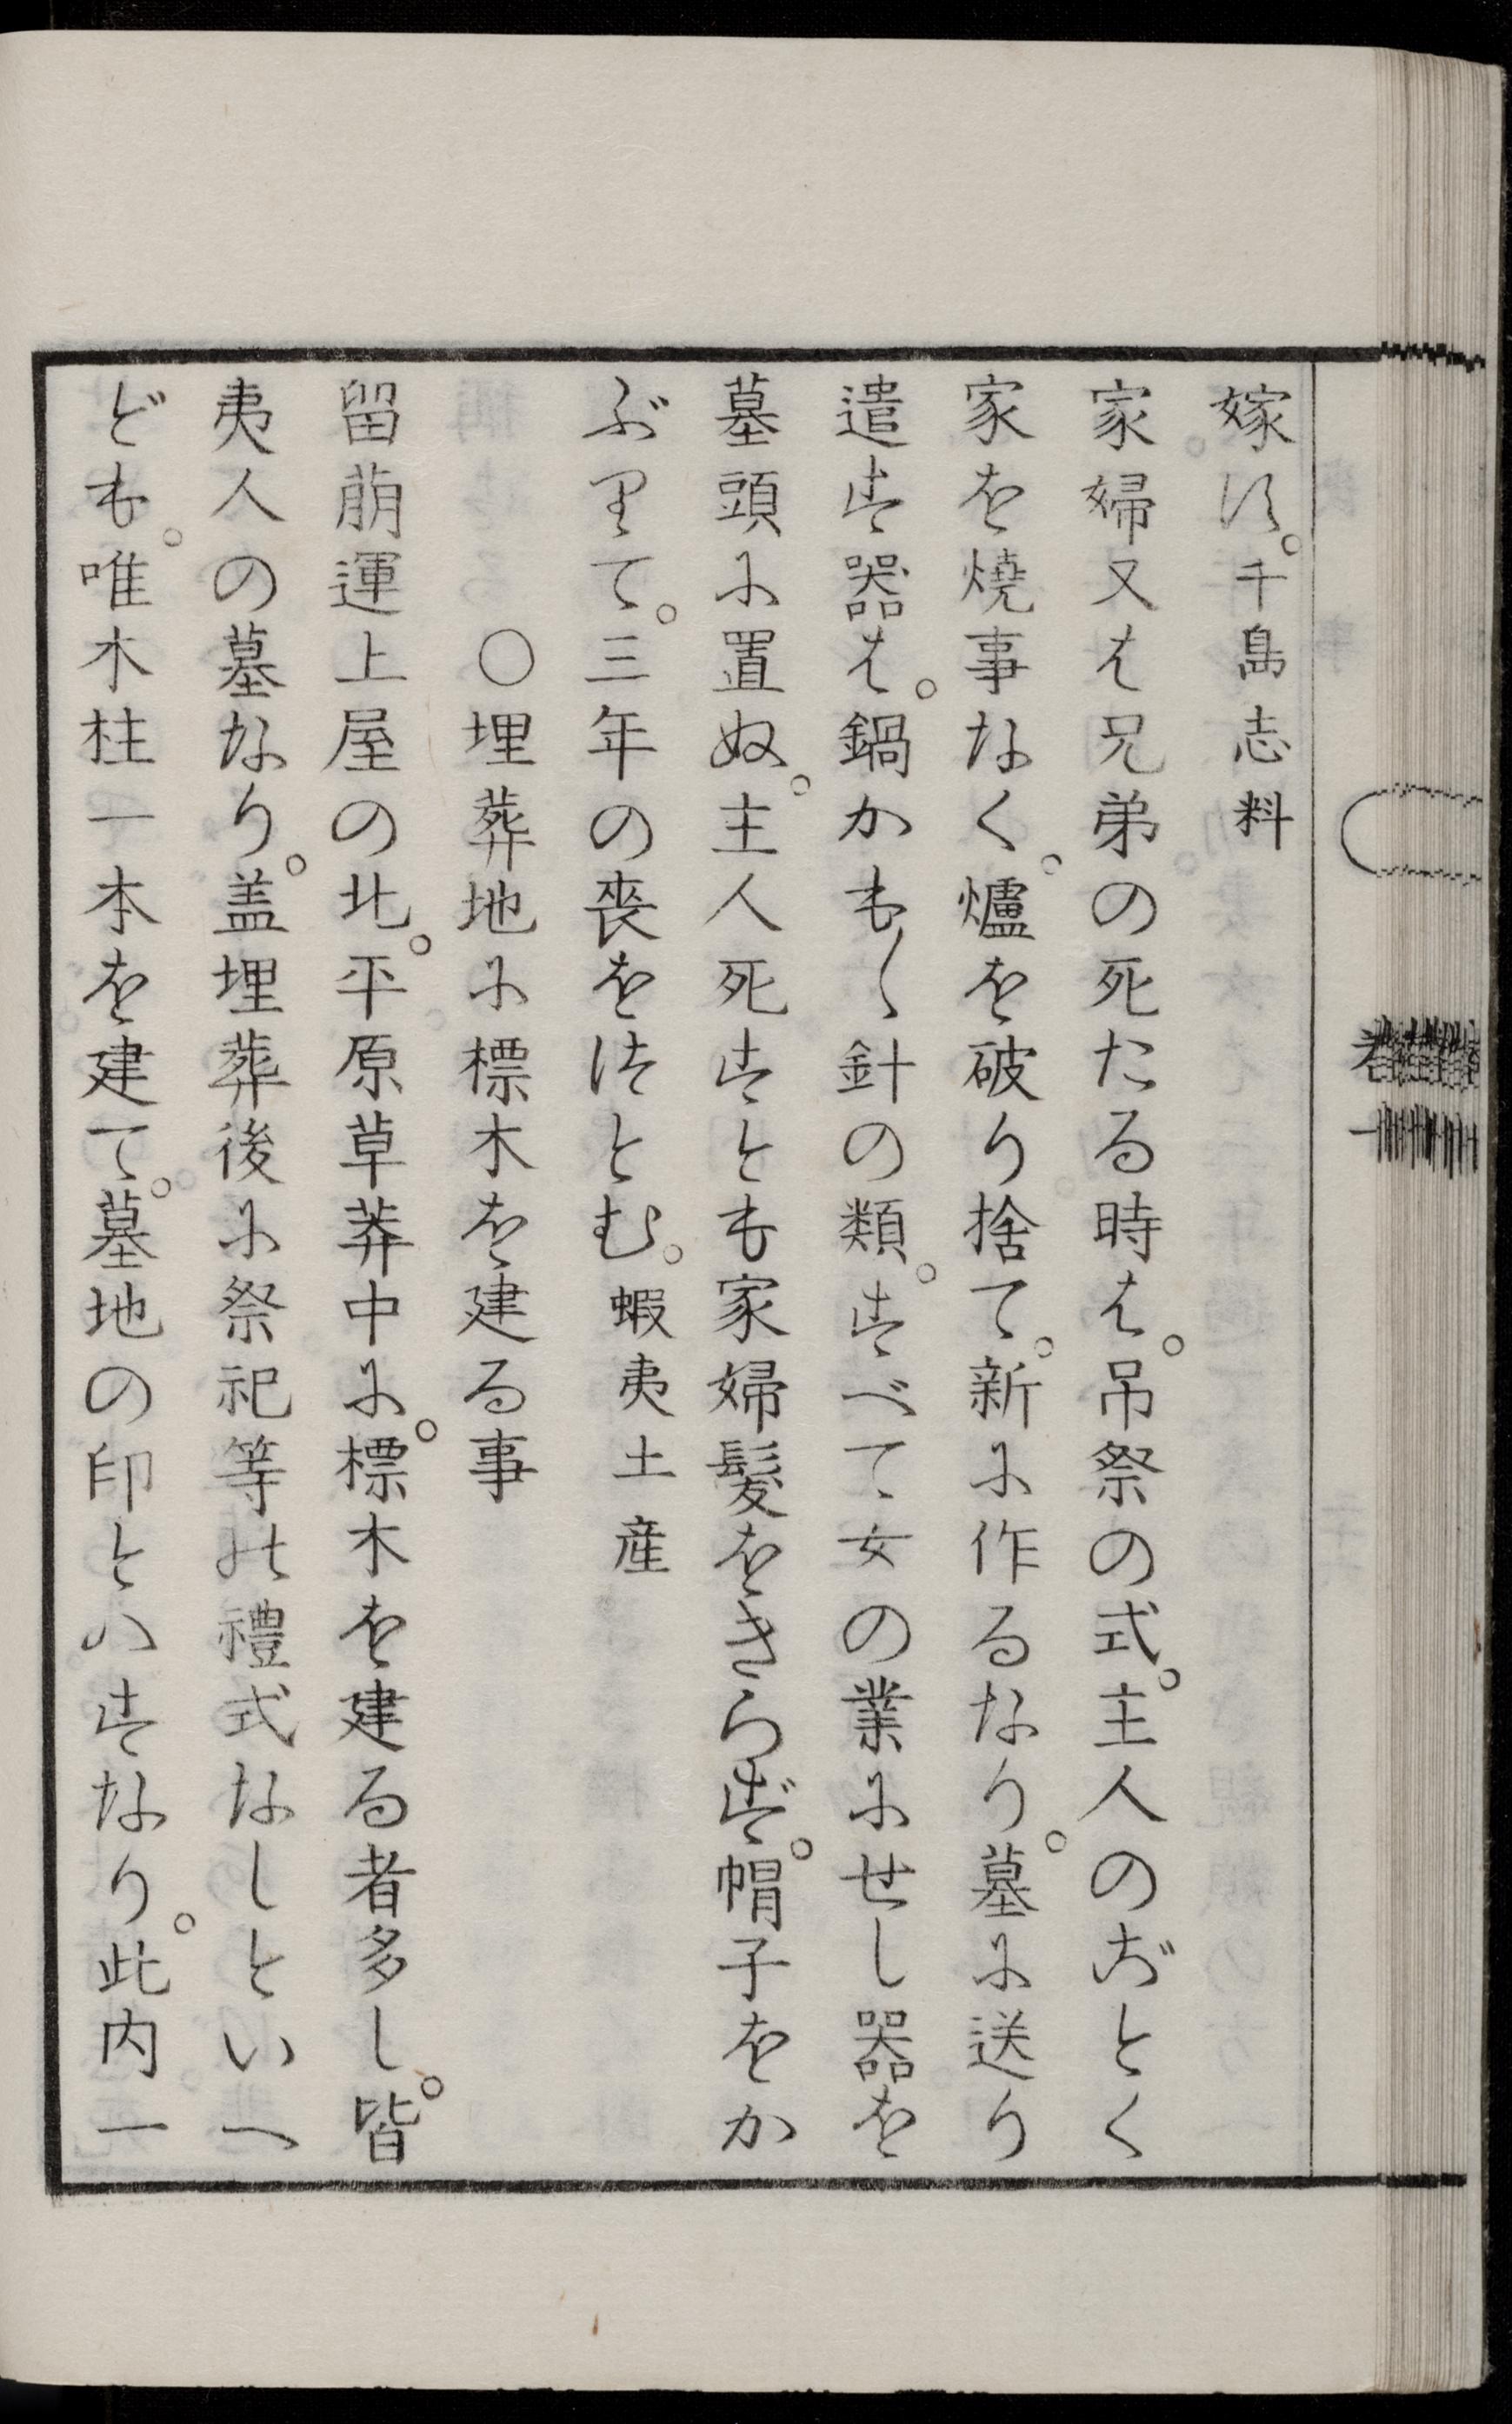 嫁す。千島志料
家婦又は兄弟の死たる時は。吊祭の式。主人のごとく
家を燒事なく。爐を破り捨て。新に作るなり。墓に送り
遣す器は。鍋かも〳〵針の類。すべて女の業にせし器を
墓頭に置ぬ。主人死すとも家婦髪をきらず。帽子をか
ぶりて。三年の喪をつとむ。蝦夷土産
〇埋葬地に標木を建る事
留萠運上屋の北。平原草莽中に。標木を建る者多し。皆
夷人の墓なり。盖埋葬後に祭祀等の禮式なしといへ
ども。唯木柱一本を建て。墓地の印とハすなり。此内一
卷一